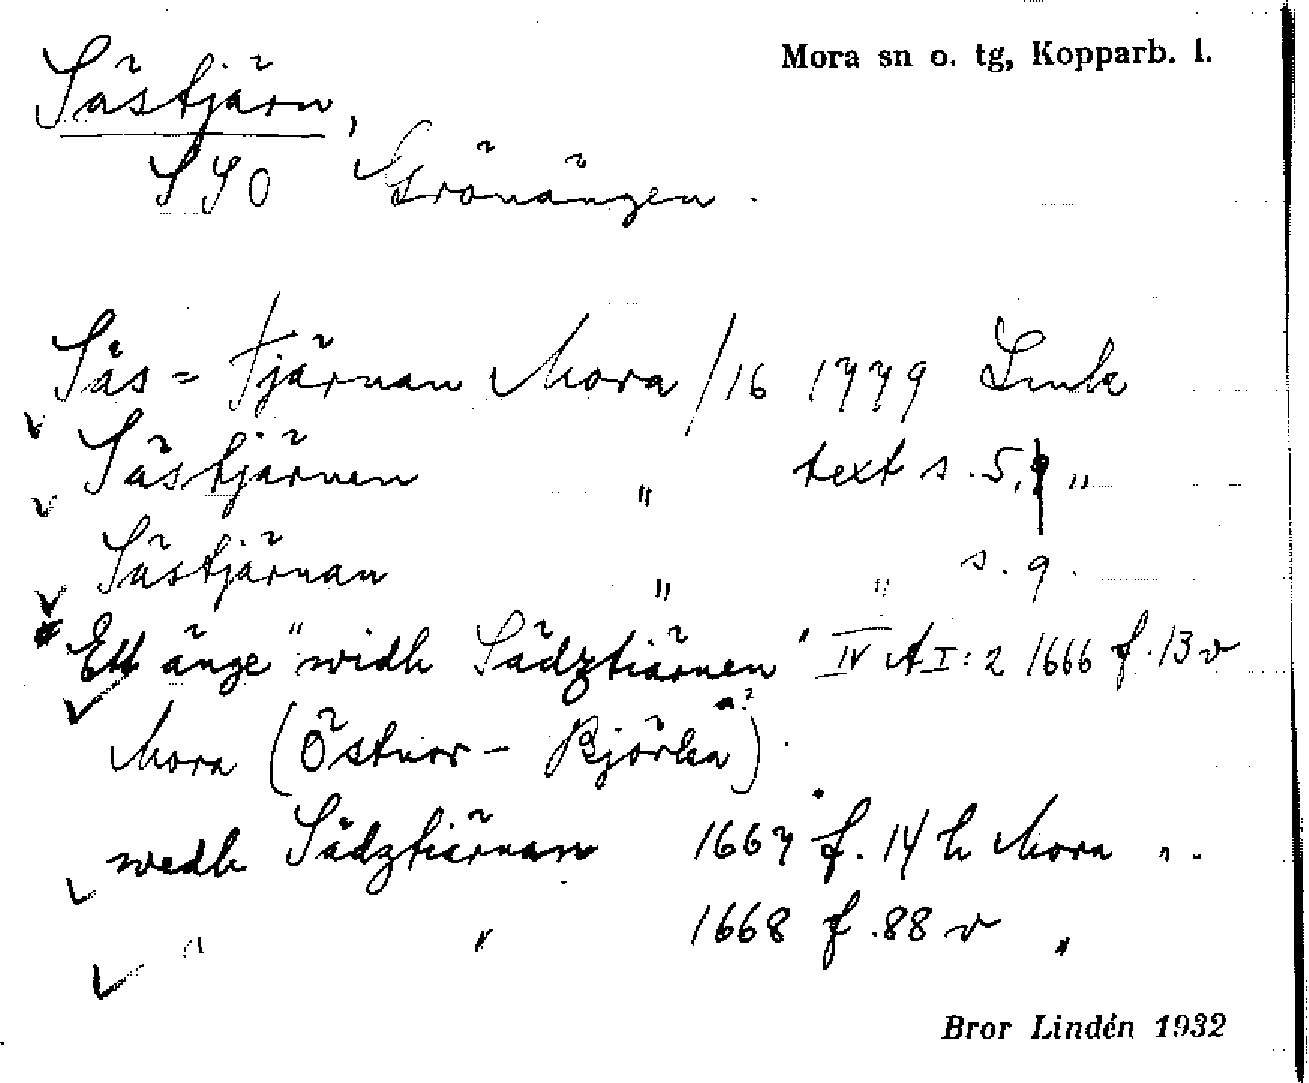 Mora sn o. tg, Kopparb. l.
Sästjärn,
SSO Grönängen.
Säs = tjärnan Mora /16 1779 Lmk
Sästjärnen " text s. 5, 9 "
Sästjärnan " " s. 9.
Ett änge "widh Sädztiärnen" IV A I: 2 1666 f. 13 v
Mora (Östnor - Björka) a?
wedh Sädztiärnan 1667 f. 14 h Mora ".
" " 1668 f. 88 v "
Bror Lindén 1932